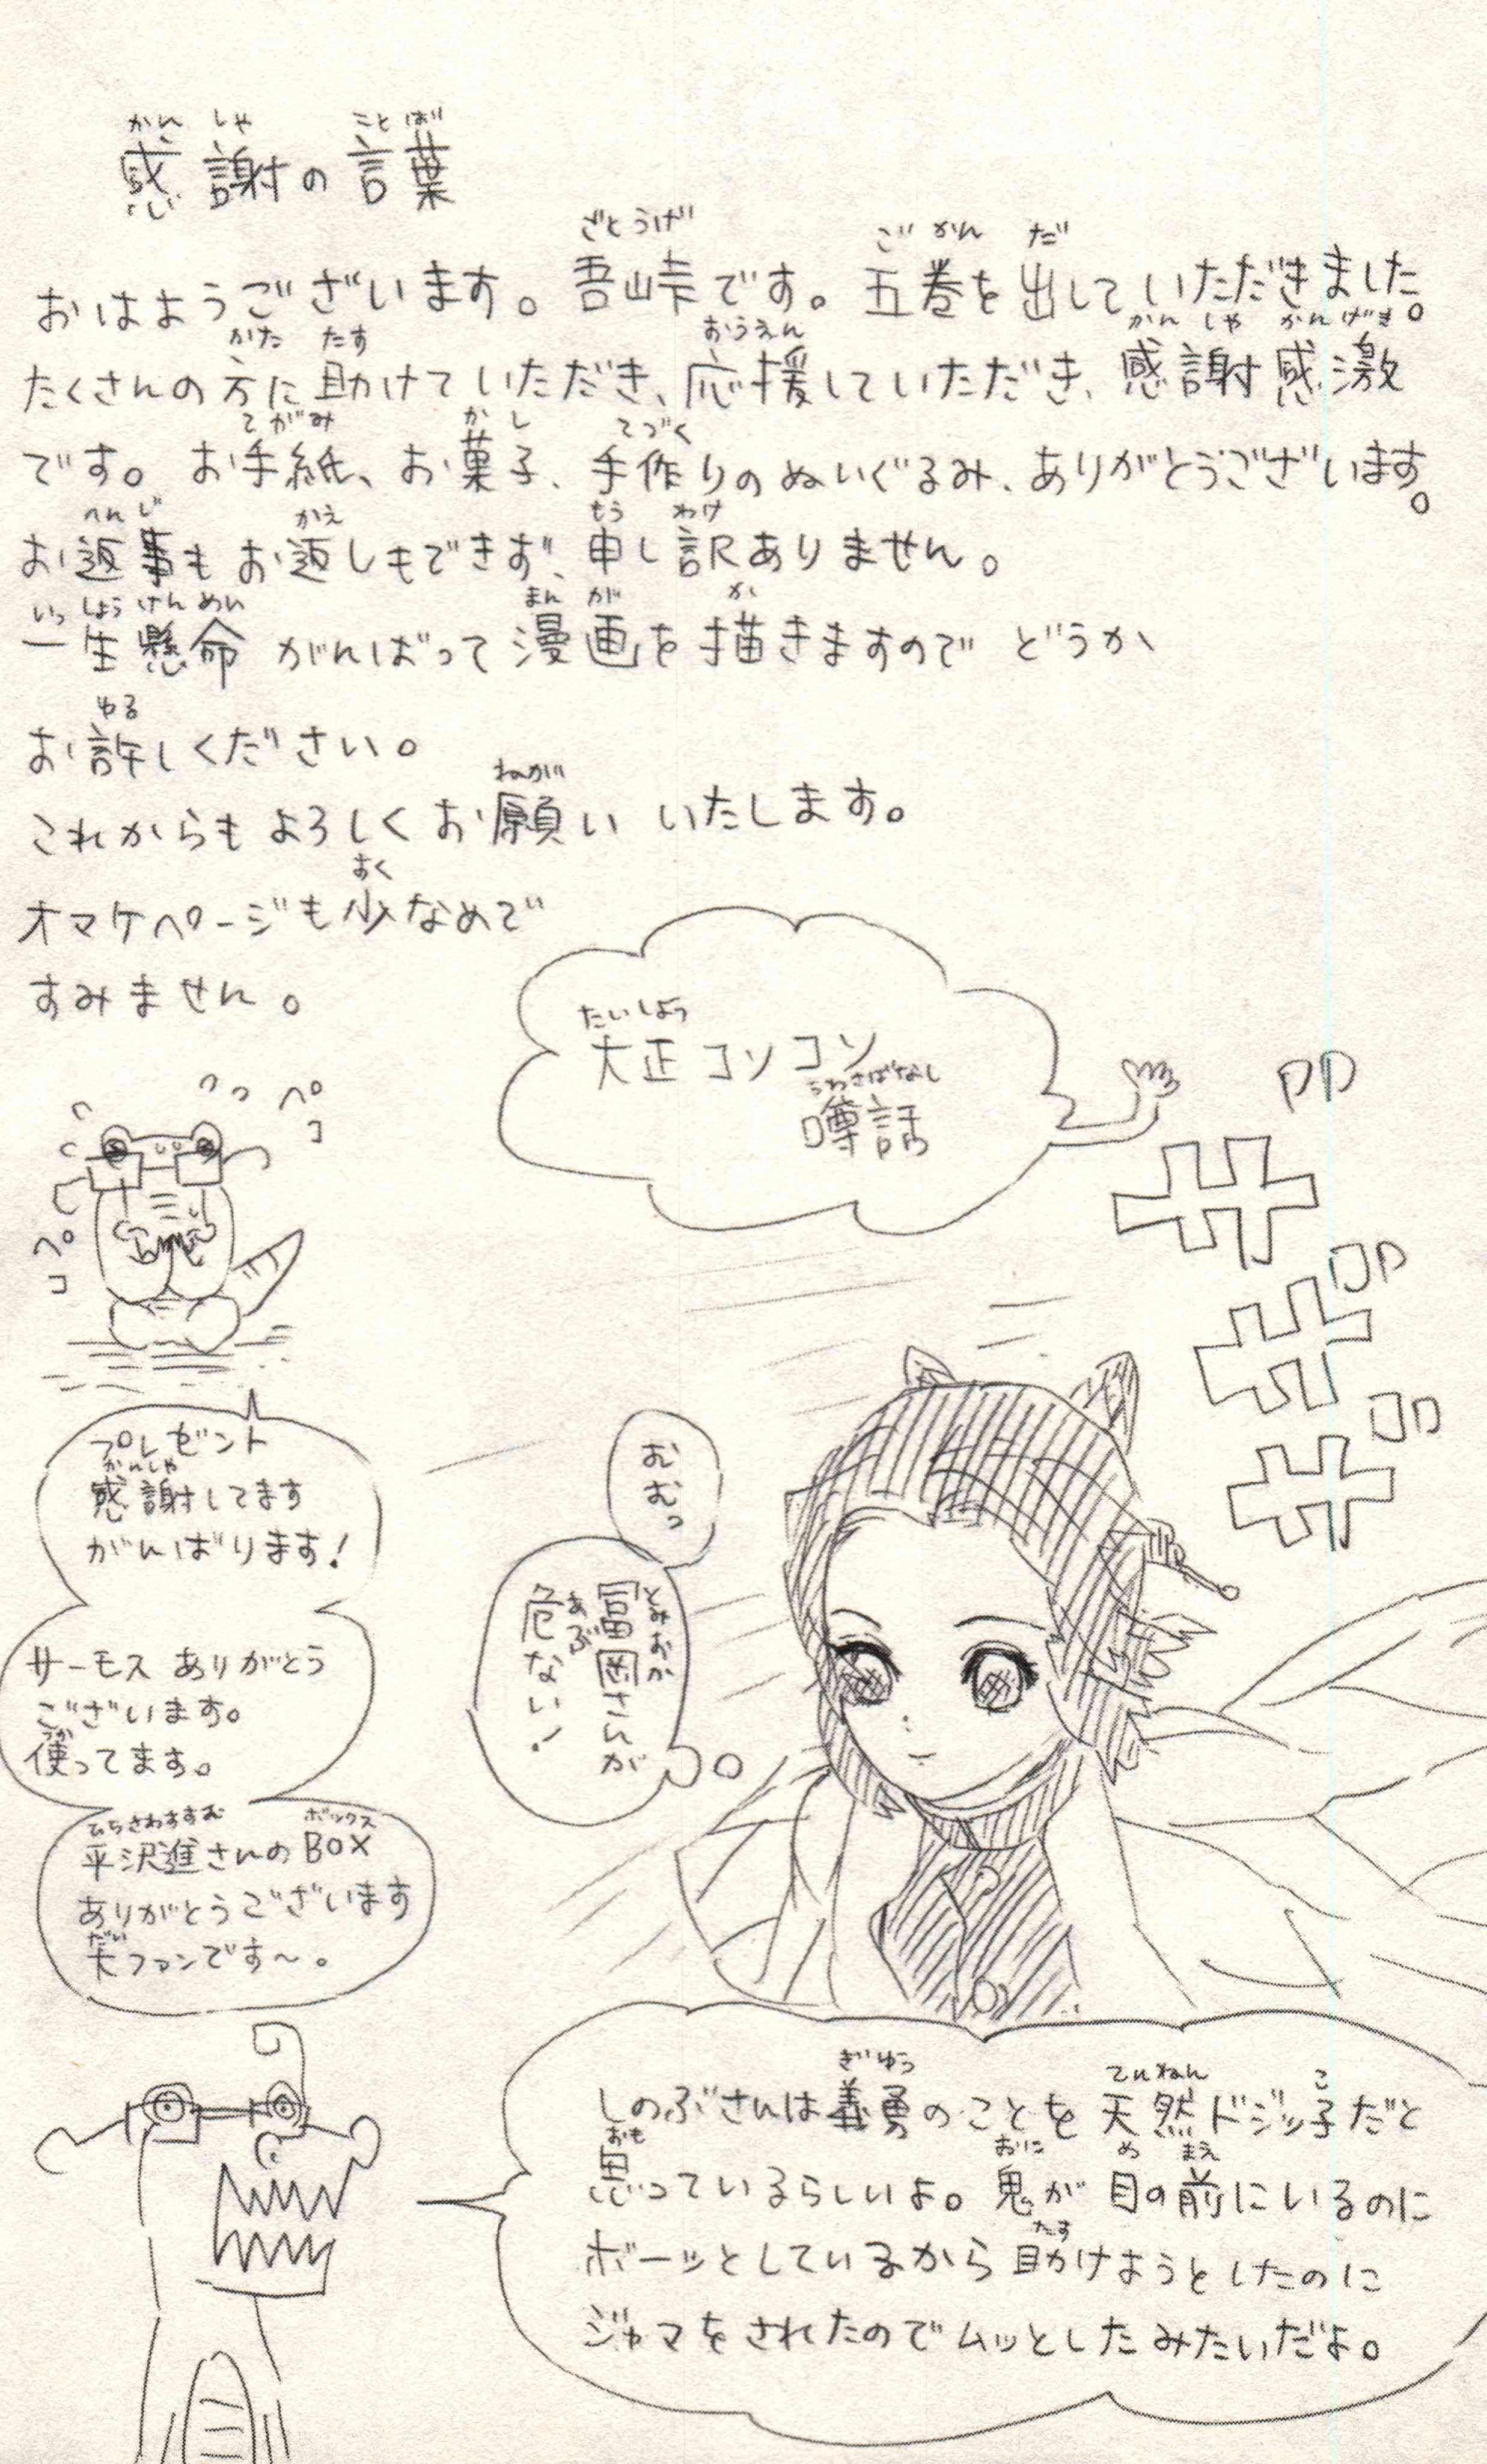 感謝の言葉
おはようございます。吾峠です。五巻を出していただきました。
たくさんの方に助けていただき、応援していただき、感謝感激
です。お手紙、お菓子、手作りのぬいぐるみ、ありがとうございます。
お返事もお返しもできず、申し訳ありません。
一生懸命がんばって漫画を描きますのでどうか
お許しください。
これからもよろしくお願いいたします。
オマケページも少なめで
すみません。
大正コソコソ
噂話
ペコ
ペコ
プレゼント
感謝してます
がんばります!
サーモスありがとう
ございます。
使ってます。
平沢進さんのBOX
ありがとうございます
大ファンです〜。
むむっ
冨岡さんが
危ない!
しのぶさんは義勇のことを天然ドジッ子だと
思っているらしいよ。鬼が目の前にいるのに
ボーッとしているから助けようとしたのに
ジャマをされたのでムッとしたみたいだよ。